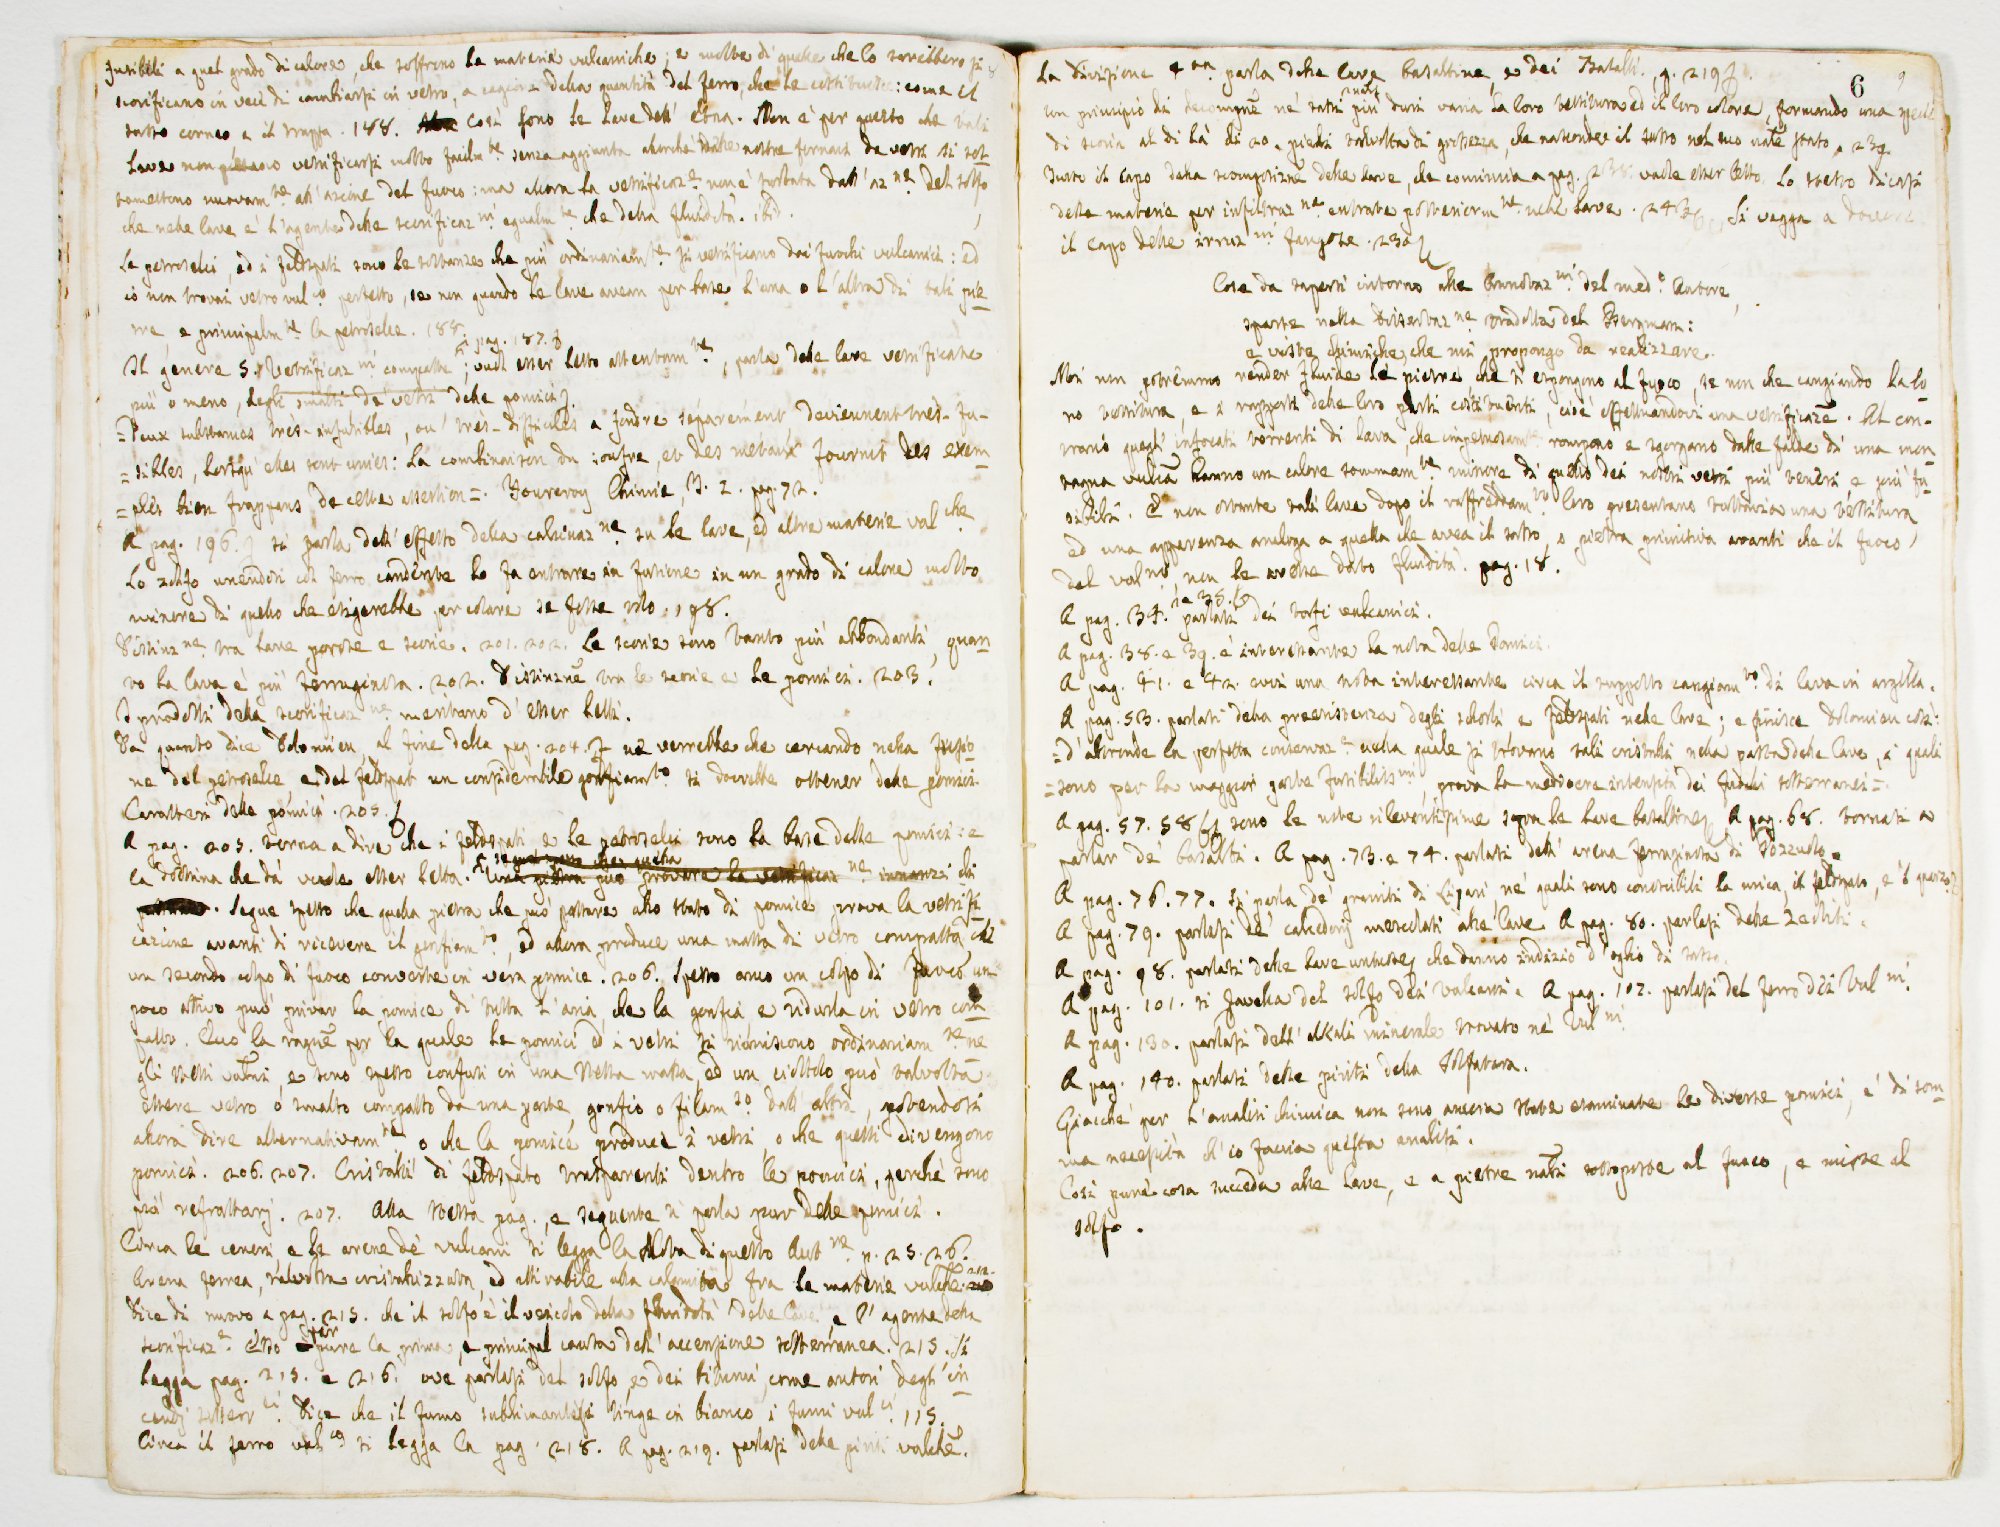 fusibili a quel grado di calore, che soffrono le materie vulcaniche; e molte di quelle che lo sarebbero si
scorificano in veci di cambiarsi in vetro, a cagion della quantità del ferro, che le costituisce: come il
sasso corneo e il trappa. 188. Così sono le lave dell' Etna. Non è per questo che tali
lave non possano vetrificarsi molto facilm.te senza aggiunta alorchè nelle nostre fornaci da vetri si sot-
tomettono nuovam.te all' azione del fuoco: ma alora la vetrificaz.e non è turbata dall' az.ne del solfo
che nelle lave è l'agente delle scorificaz.ni egualm.te che della fluidità. ibid.
Le petroselci, ed i feldspati sono le sostanze che più ordinariam.te si vetrificano dai fuochi vulcanici: ed
io non trovai vetro vul.co perfetto, se non quando le lave avean per base l'una o l'altra di tali pie-
tre e principalm.te la petroselce. 188.
Il genere 5. Vetrificaz.ni compatte, pag. 187. f; vuol esser letto attentam.te, parla delle lave vetrificate
più o meno, degli smalti de' vetri delle pomici f.
=Deux substances très-infusibles, ou très-difficiles a fondre séparement deviennent très-fu-
=sibles, lorsqu' elles sont unies: la combinaison du soufre, et des metaux fournit des exem-
=ples bien frappans de cette assertion=. Fourcroy Chimie, T. 2. pag. 72.
A pag. 196. f si parla dell' effetto della calcinaz.ne su le lave, ed altre materie vul.che
Lo zolfo unendosi col ferro candente lo fa entrare in fusione in un grado di calore molto
minore di quello che esigerebbe per colare se fosse solo. 198.
Distinz.ne tra lave porose e scorie. 201. 202. Le scorie sono tanto più abbondanti, quan-
to la lava è più ferruginosa. 202. Distinzne tra le scorie e le pomici. 203.
I prodotti della scorificaz.ne meritano d' esser letti.
Da quanto dice Dolomieu al fine della pag. 204. f ne verrebbe che cercando nella fusio-
ne del petroselce, e del feldspat un considerabile gonfiam.to si dovrebbe ottener delle pomici.
Caratteri delle pomici. 205. f
A pag. 205. torna a dire che i feldspati e le petroselci sono la base delle pomici: e
la dottrina che dà vuole esser letta. Una pietra può provare la vetrificaz.ne innanzi di
Segue spesso che quella pietra che può passare allo stato di pomice prova la vetrifi-
cazione avanti di ricevere il gonfiam.to, ed alora produce una massa di vetro compatto che
un secondo colpo di fuoco converte in vera pomice. 206. Spesso anco un colpo di fuoco un
poco attivo può privar la pomice di tutta l' aria, che la gonfia e ridurla in vetro com-
patto. Ecco la ragne per la quale le pomici ed i vetri si riuniscono ordinariam.te ne
gli stessi vulcni e sono spesso confusi in una stessa massa, ed un ciottolo può talvolta
essere vetro o smalto compatto da una parte, gonfio o filam.so dall' altra, potendosi
alora dire alternativam.te o che la pomice produce i vetri, o che questi divengono
pomici. 206. 207. Cristalli di feldspato trasparenti dentro le pomici, perchè sono
più refrattarj. 207. Alla stessa pag., e seguente si parla pur delle pomici.
Circa le ceneri e le arene de' vulcani si legga la Nota di questo Aut.re p. 25. 26.
Arena ferrea, talvolta cristallizzata, ed attirabile alla calamita fra le materie vulche. 212.
Dice di nuovo a pag. 215. che il solfo è il veicolo della fluidità delle lave, e l' agente della
scorificaz.e Esso è pure la prima, e principal causa dell' accensione sotterranea. 215. Si
legga pag. 215. e 216. ove parlasi del solfo, e dei bitumi, come autori degl' in-
cendj sotterr.ei Dice che il fumo sublimantesi tinge in bianco i fumi vul.ci 115.
Circa il ferro vul.co si legga la pag. 218. A pag. 219. parlasi delle piriti vulche.
6
9
La divisione 4.ta parla delle lave basaltine, e dei Basalti. p. 219 f.
Un principio di decompne ne' sassi anco più duri varia la loro tessitura ed il loro colore, formando una specie
di scoria al di là di 20. piedi talvolta di grossezza, che nasconde il sasso nel suo natle stato. 239.
Tutto il capo della scomposizne delle lave, che comincia a pag. 238. vuole esser letto. Lo stesso dicasi
delle materie per infiltraz.ne entrate posteriorm.te nelle lave. 243. Si vegga a dovere
il capo delle irruz.ni fangose. 230 f
Cose da sapersi intorno alle Annotaz.ni del med.o Autore,
sparse nella Dissertaz.ne tradotta del Bergman:
e viste chimiche, che mi propongo da realizzare.
Noi non potremmo render fluide le pietre, che si espongono al fuoco, se non che cangiando la lo-
ro tessitura, e i rapporti delle loro parti costituenti, cioè effettuandovi una vetrificazne. Al con-
trario quegl' infocati torrenti di lava, che impetuosam.te rompono e sgorgano dalle falde di una mon-
tagna vulca hanno un calore sommam.te minore di quello dei nostri vetri più teneri e più fu-
sibili. E non ostante tali lave dopo il raffreddam.to loro presentano tuttavia una tessitura
ed una apparenza analoga a quella che avea il sasso, o pietra primitiva avanti che il fuoco
del vulno, non le avesse dato fluidità. pag. 18.
A pag. 34. e 38. parlasi dei tufi vulcanici.
A pag. 38. e 39. è interessante la nota delle Pomici.
A pag. 41. e 42. evvi una nota interessante circa il supposto cangiam.to di lava in argilla.
A pag. 53. parlasi della preesistenza degli schorli e feldspati nelle lave; e finisce Dolomieu così:
=d' altronde la perfetta conservaz.e nella quale si trovano tali cristalli nella pasta delle lave, i quali
=sono per la maggior parte fusibiliss.mi, prova la mediocre intensità dei fuochi sotterranei=.
A pag. 57. 58 f sono le note rilevantissime sopra le lave basaltine. A pag. 68. tornasi a
parlar de' basalti. A pag. 73. e 74. parlasi dell' arena ferruginosa di Pozzuolo.
A pag. 76. 77. si parla de' graniti di Lipari, ne' quali sono conoscibili la mica, il feldspato, e 'l quarzo
A pag. 79. parlasi de' calcedonj mescolati alle lave. A pag. 80. parlasi delle Zeoliti.
A pag. 98. parlasi delle lave untuose, che danno indizio d' oglio di sasso.
A pag. 101. si favella del solfo dei Vulcani. A pag. 102. parlasi del ferro dei Vul.ni
A pag. 130. parlasi dell' alkali minerale trovato ne' Vul.ni
A pag. 140. parlasi delle piriti della Solfatara.
Giacchè per l' analisi chimica non sono ancora state esaminate le diverse pomici, è di som-
ma necessità ch' io faccia questa analisi.
Così pure cosa succeda alle lave, e a pietre natli sottoposte al fuoco, e miste al
solfo.